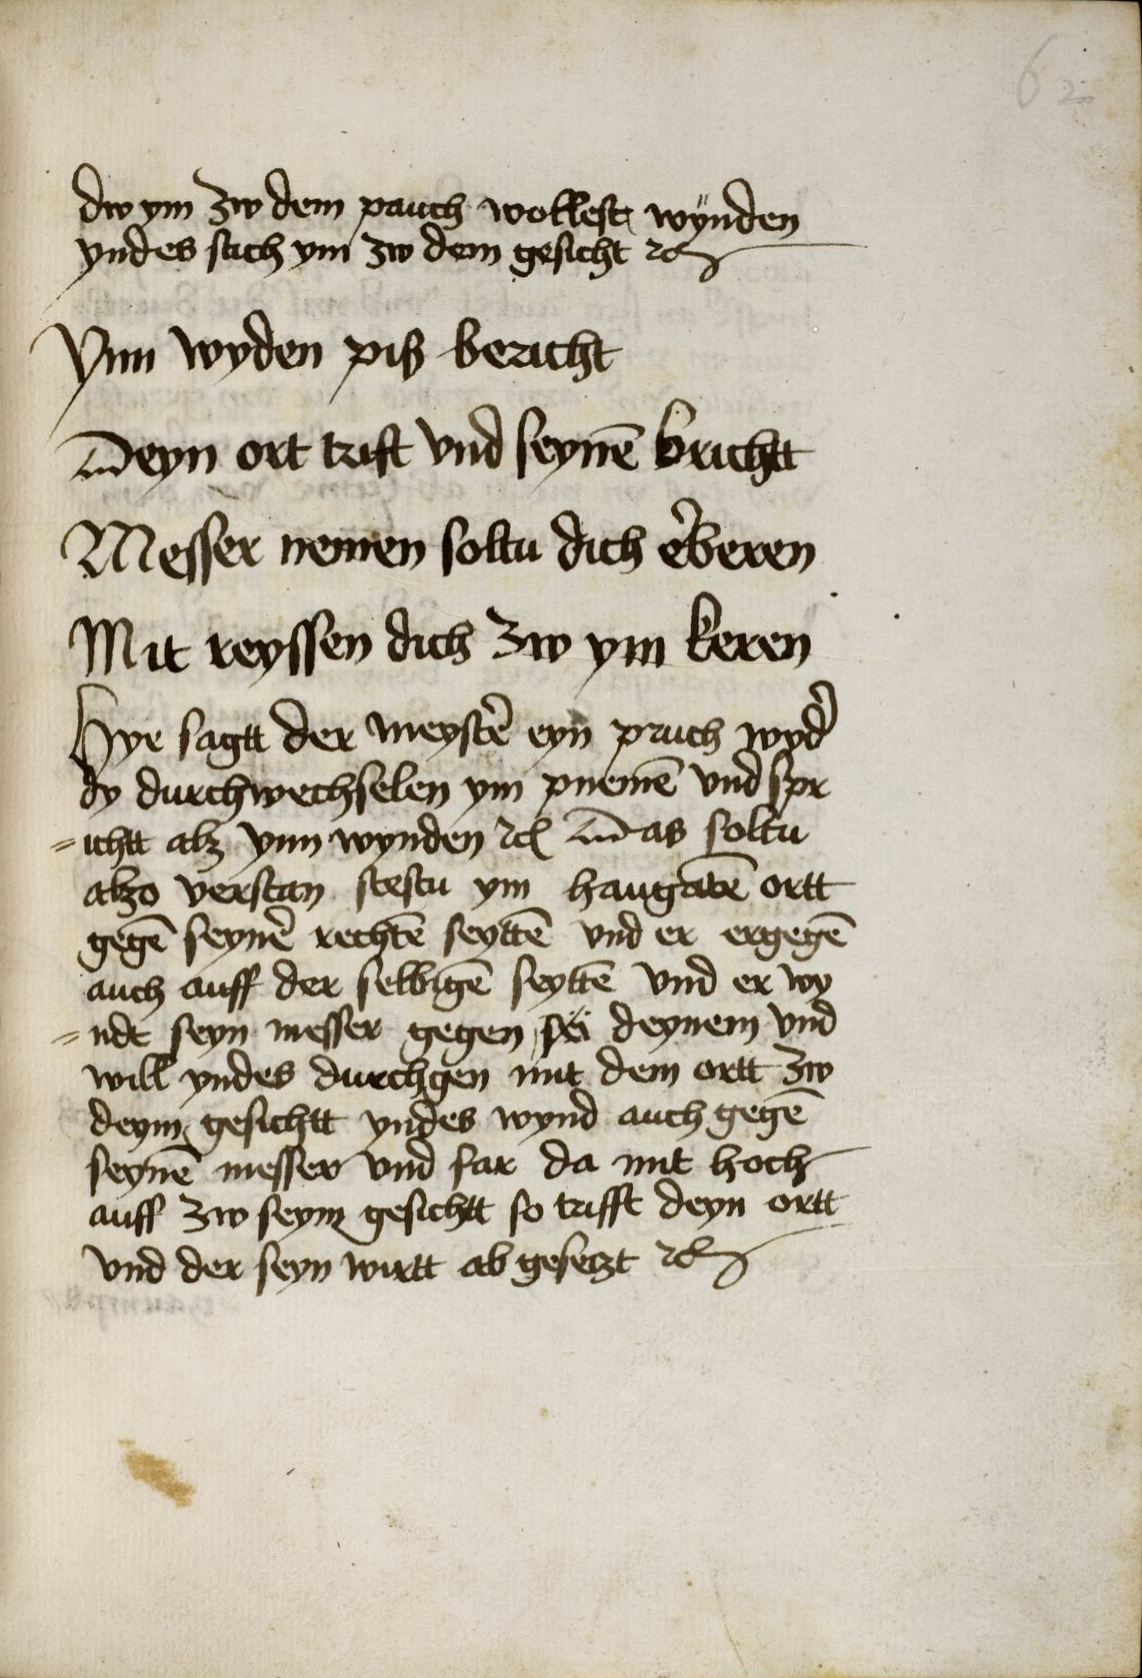 62
dw ym zw dem pauch wollest wÿnden
yndes stich ym zw dem gesicht ꝛc
Ynn wyden piß bericht
Deyn ort trift vnd seynē brichtt
Messer nemen soltu dich eʼberen
Mit reyssen dich zw ym keren
Hye sagtt der meysteʼ eyn pruch wydʼ
dy durchwechselen ym pnemē vnd spr
=ichtt alz ynn wynden ꝛc Das soltu
alzo verstan stestu ym hangētē ortt
gegē seyneʼ rechtē seyttē vnd er ergegē
auch auff der selbigē seyttē vnd er wy
=ndt seyn messer gegen deynem vnd
will yndes durchgen mit dem ortt zw
deym gesichtt yndes wynd auch gegē
seynē messer vnd far da mit hoch
auff zw seym gesichtt so trifft deyn ortt
vnd der seyn wirtt ab gesetzt ꝛc